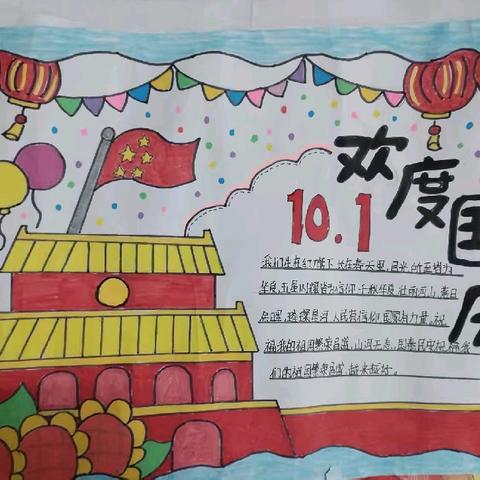 欢度国庆
10.1
我们生在红旗下,长在春天里,目光所至皆为
华夏,五星闪耀皆为信仰
人民有信仰国家有力量,祝
福我的祖国繁荣昌盛,山河无恙,国泰民安祝福我
们的祖国繁荣昌盛,越来越好。